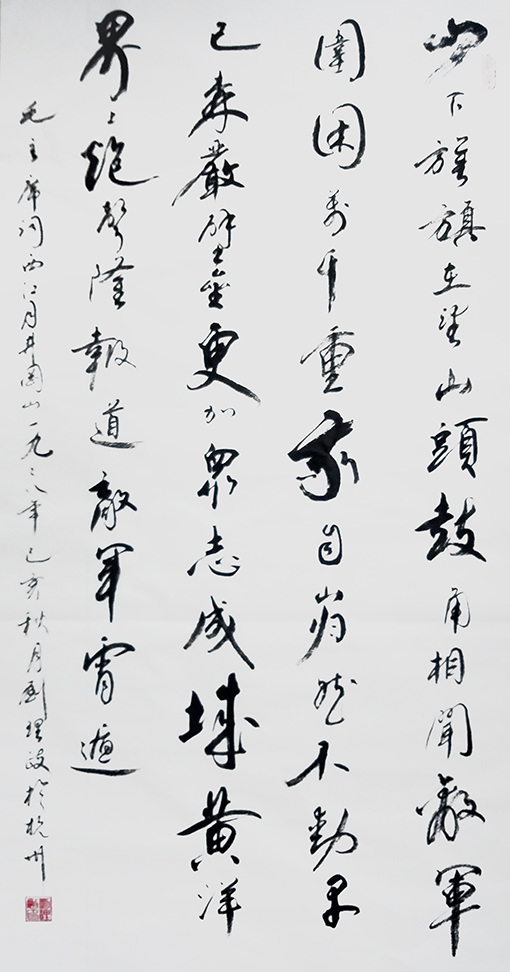 山下旌旗在望山頭鼓角相聞敵軍
圍困萬千重我自巋然不動早
已森嚴壁壘更加衆志成城黄洋
界上炮聲隆報道敵軍宵遁
毛主席詞西江月井岡山一九二八年己亥秋月劉理政於杭州